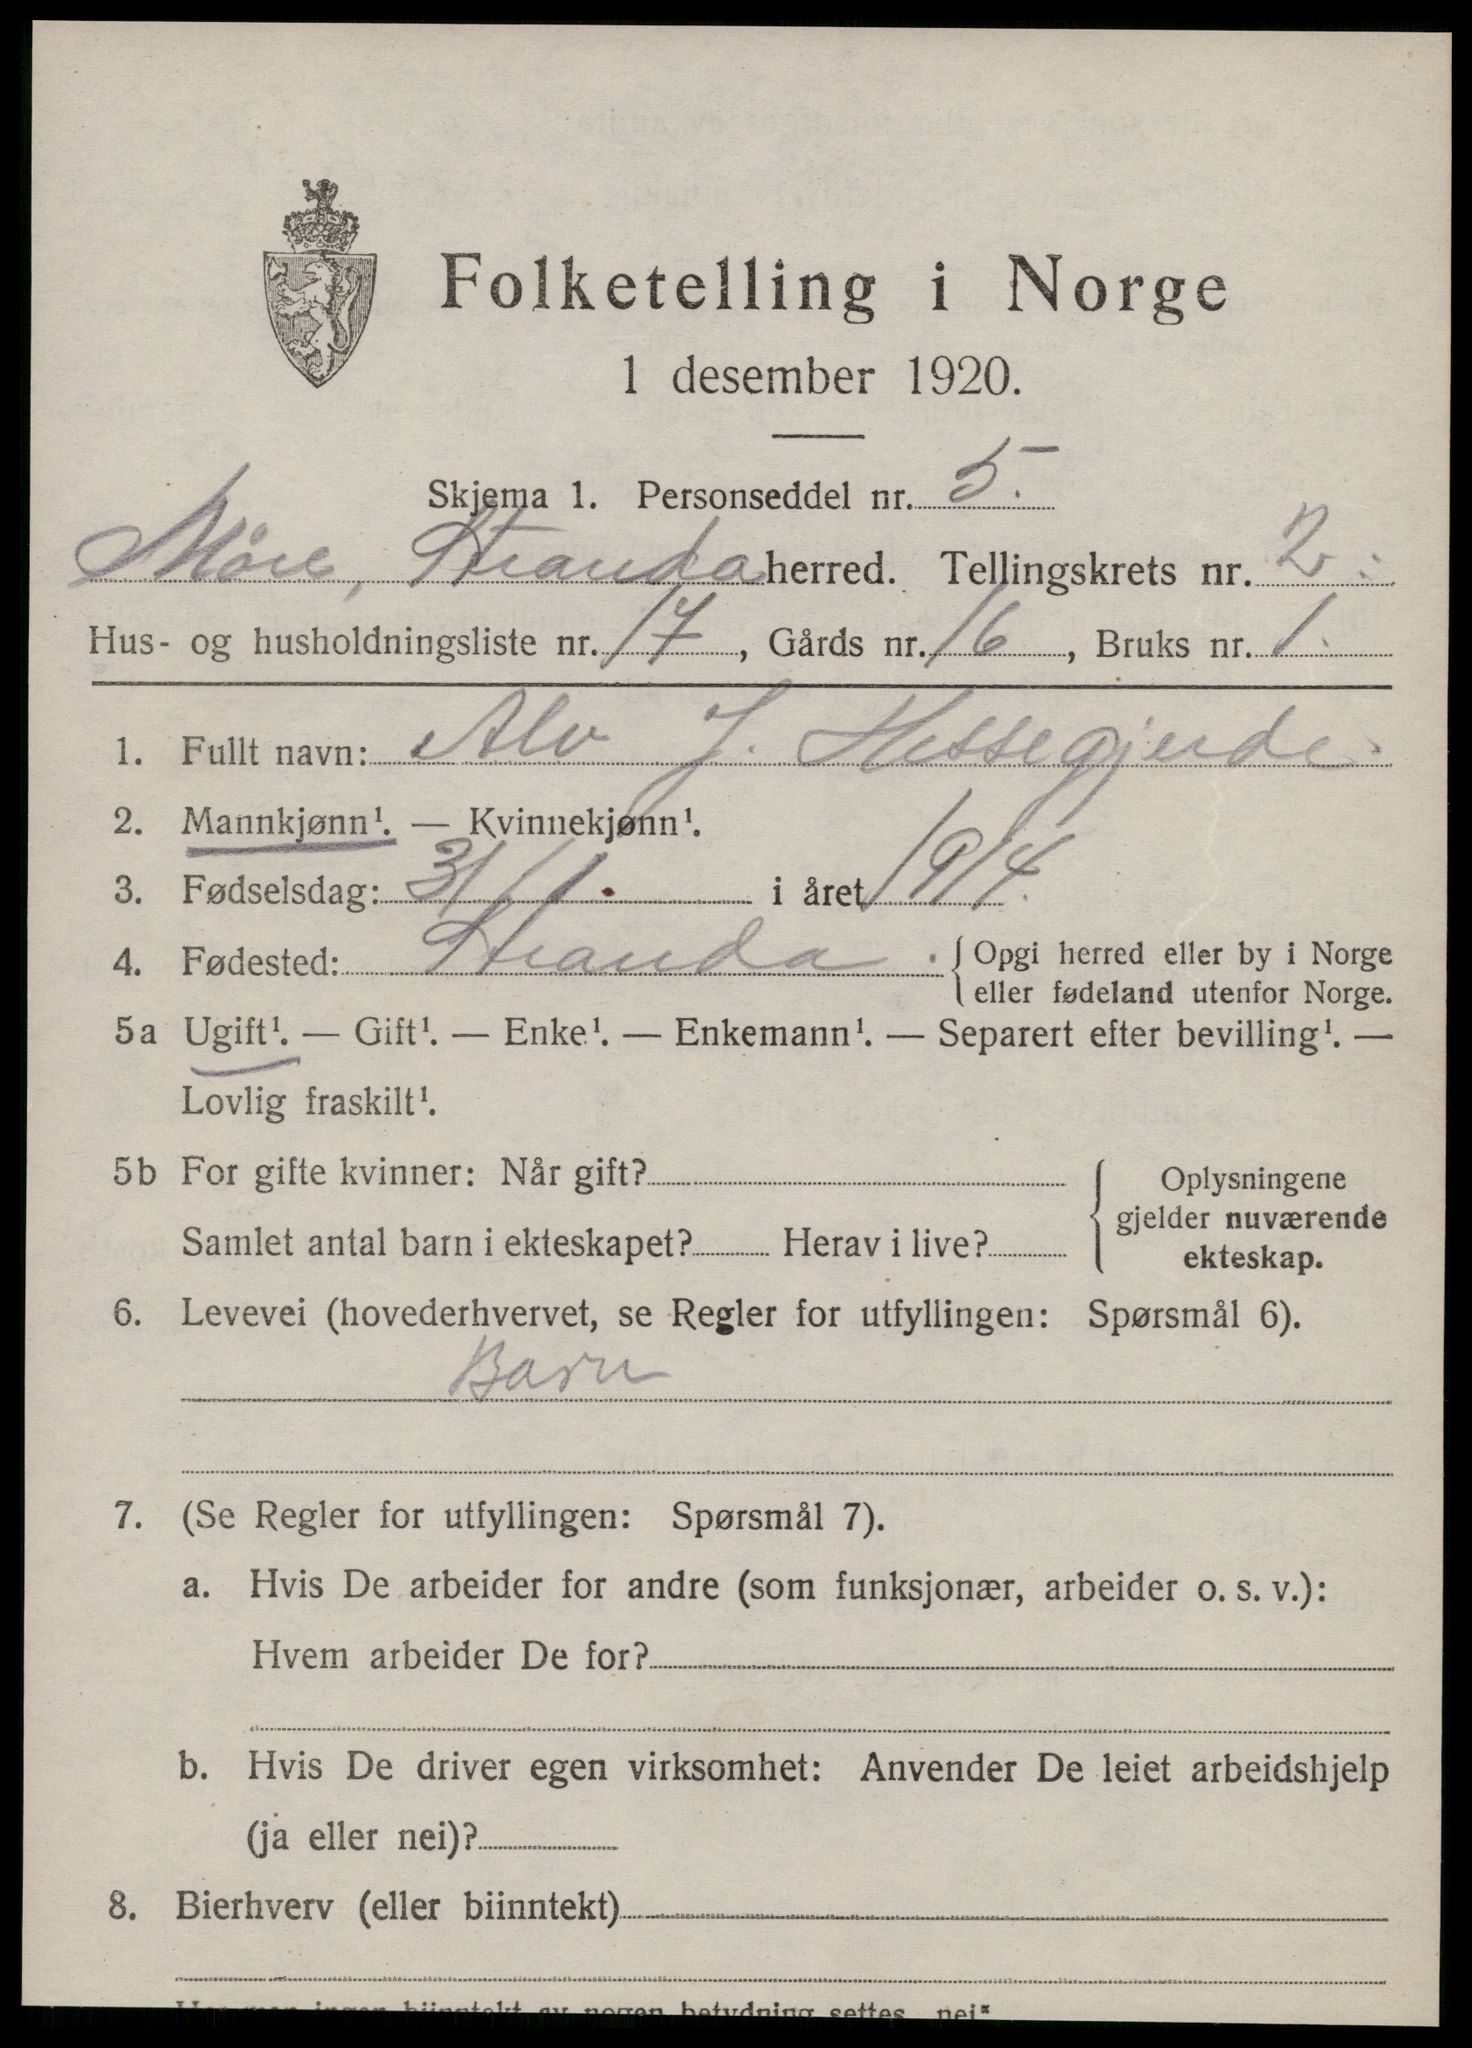 Folketelling i Norge
1 desember 1920.
Skjema 1. Personseddel nr. 5.
Møre, Stranda herred. Tellingskrets nr. 2.
Hus- og husholdningsliste nr. 17, Gårds nr. 16, Bruks nr. 1.
1. Fullt navn: Alv J. Hessegjerde.
2. Mannkjønn¹. — Kvinnekjønn¹.
3. Fødselsdag: 31/1. i året 1914.
4. Fødested: Stranda. { Opgi herred eller by i Norge
eller fødeland utenfor Norge.
5a Ugift¹. — Gift¹. — Enke¹. — Enkemann¹. — Separert efter bevilling¹. —
Lovlig fraskilt¹.
5b For gifte kvinner: Når gift?
Samlet antal barn i ekteskapet? Herav i live?
{ Oplysningene
gjelder nuværende
ekteskap.
6. Levevei (hovederhvervet, se Regler for utfyllingen: Spørsmål 6).
Barn
7. (Se Regler for utfyllingen: Spørsmål 7).
a. Hvis De arbeider for andre (som funksjonær, arbeider o. s. v.):
Hvem arbeider De for?
b. Hvis De driver egen virksomhet: Anvender De leiet arbeidshjelp
(ja eller nei)?
8. Bierhverv (eller biinntekt)
man ingen biinntekt av nogen betydning settes „nei"